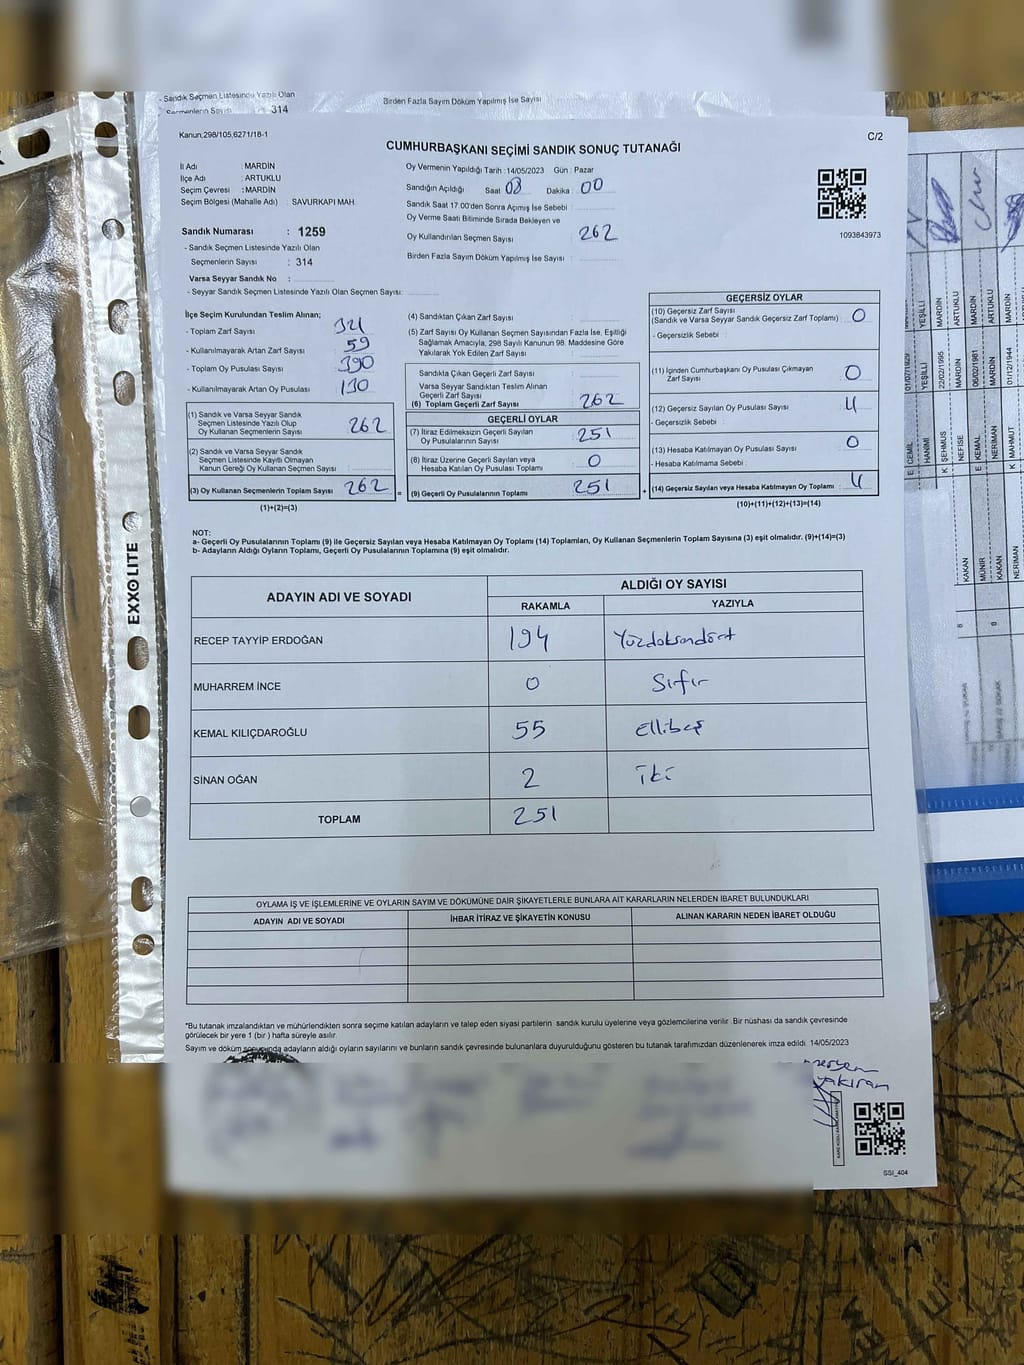 - Sandık Seçmen Listesinde Yazılı Olan
Seçmenlerin Sayısı : 314
Birden Fazla Sayım Döküm Yapılmış İse Sayısı
Kanun,298/105,6271/18-1
C/2
CUMHURBAŞKANI SEÇİMİ SANDIK SONUÇ TUTANAĞI
İl Adı : MARDİN
İlçe Adı : ARTUKLU
Seçim Çevresi : MARDİN
Seçim Bölgesi (Mahalle Adı) : SAVURKAPI MAH.
Oy Vermenin Yapıldığı Tarih : 14/05/2023 Gün : Pazar
Sandığın Açıldığı Saat 08 Dakika 00
Sandık Saat 17.00'den Sonra Açımış İse Sebebi :
Oy Verme Saati Bitiminde Sırada Bekleyen ve
Oy Kullandırılan Seçmen Sayısı 262
Birden Fazla Sayım Döküm Yapılmış İse Sayısı :
1093843973
Sandık Numarası : 1259
- Sandık Seçmen Listesinde Yazılı Olan
Seçmenlerin Sayısı : 314
Varsa Seyyar Sandık No :
- Seyyar Sandık Seçmen Listesinde Yazılı Olan Seçmen Sayısı:
İlçe Seçim Kurulundan Teslim Alınan;
- Toplam Zarf Sayısı 321
- Kullanılmayarak Artan Zarf Sayısı 59
- Toplam Oy Pusulası Sayısı 390
- Kullanılmayarak Artan Oy Pusulası 130
(1) Sandık ve Varsa Seyyar Sandık
Seçmen Listesinde Yazılı Olup
Oy Kullanan Seçmenlerin Sayısı 262
(2) Sandık ve Varsa Seyyar Sandık
Seçmen Listesinde Kayıtlı Olmayan
Kanun Gereği Oy Kullanan Seçmen Sayısı :
(3) Oy Kullanan Seçmenlerin Toplam Sayısı 262 =
(1)+(2)=(3)
(4) Sandıktan Çıkan Zarf Sayısı :
(5) Zarf Sayısı Oy Kullanan Seçmen Sayısından Fazla İse, Eşitliği
Sağlamak Amacıyla, 298 Sayılı Kanunun 98. Maddesine Göre
Yakılarak Yok Edilen Zarf Sayısı :
Sandıkta Çıkan Geçerli Zarf Sayısı :
Varsa Seyyar Sandıktan Teslim Alınan
Geçerli Zarf Sayısı :
(6) Toplam Geçerli Zarf Sayısı 262
GEÇERLİ OYLAR
(7) İtiraz Edilmeksizin Geçerli Sayılan
Oy Pusulalarının Sayısı : 251
(8) İtiraz Üzerine Geçerli Sayılan veya
Hesaba Katılan Oy Pusulası Toplamı 0
(9) Geçerli Oy Pusulalarının Toplamı 251 +
GEÇERSİZ OYLAR
(10) Geçersiz Zarf Sayısı
(Sandık ve Varsa Seyyar Sandık Geçersiz Zarf Toplamı) : 0
- Geçersiz Sebebi :
(11) İçinden Cumhurbaşkanı Oy Pusulası Çıkmayan
Zarf Sayısı : 0
(12) Geçersiz Sayılan Oy Pusulası Sayısı 11
- Geçersizlik Sebebi :
(13) Hesaba Katılmayan Oy Pusulası Sayısı 0
- Hesaba Katılmama Sebebi :
(14) Geçersiz Sayılan veya Hesaba Katılmayan Oy Toplamı 11
(10)+(11)+(12)+(13)=(14)
NOT:
a- Geçerli Oy Pusulalarının Toplamı (9) ile Geçersiz Sayılan veya Hesaba Katılmayan Oy Toplamı (14) Toplamları, Oy Kullanan Seçmenlerin Toplam Sayısına (3) eşit olmalıdır. (9)+(14)=(3)
b- Adayların Aldığı Oyların Toplamı, Geçerli Oy Pusulalarının Toplamına (9) eşit olmalıdır.
ADAYIN ADI VE SOYADI ALDIĞI OY SAYISI
RAKAMLA YAZIYLA
RECEP TAYYİP ERDOĞAN 194 Yüzdoksandört
MUHARREM İNCE 0 Sıfır
KEMAL KILIÇDAROĞLU 55 Ellibeş
SİNAN OĞAN 2 iki
TOPLAM 251
OYLAMA İŞ VE İŞLEMLERİNE VE OYLARIN SAYIM VE DÖKÜMÜNE DAİR ŞİKAYETLERLE BUNLARA AİT KARARLARIN NELERDEN İBARET BULUNDUKLARI
ADAYIN ADI VE SOYADI İHBAR İTİRAZ VE ŞİKAYETİN KONUSU ALINAN KARARIN NEDEN İBARET OLDUĞU
*Bu tutanak imzalandıktan ve mühürlendikten sonra seçime katılan adayların ve talep eden siyasi partilerin sandık kurulu üyelerine veya gözlemcilerine verilir. Bir nüshası da sandık çevresinde
görülecek bir yere 1 (bir) hafta süreyle asılır.
Sayım ve döküm sonucunda adayların aldığı oyların sayılarını ve bunların sandık çevresinde bulunanlara duyurulduğunu gösteren bu tutanak tarafımızdan düzenlenerek imza edildi. 14/05/2023
SSİ_404
EXXOLITE
CEMİL
HANIMI
YEŞİLLİ
YEŞİLLİ
ŞEHMUS
NEFİSE
22/02/1995
MARDİN
MARDİN
ARTUKLU
KEMAL
NERİMAN
06/02/1981
MARDİN
MARDİN
ARTUKLU
MAHMUT
01/12/1944
MARDİN
KAKAN
MÜNİR
KAKAN
NERİMAN